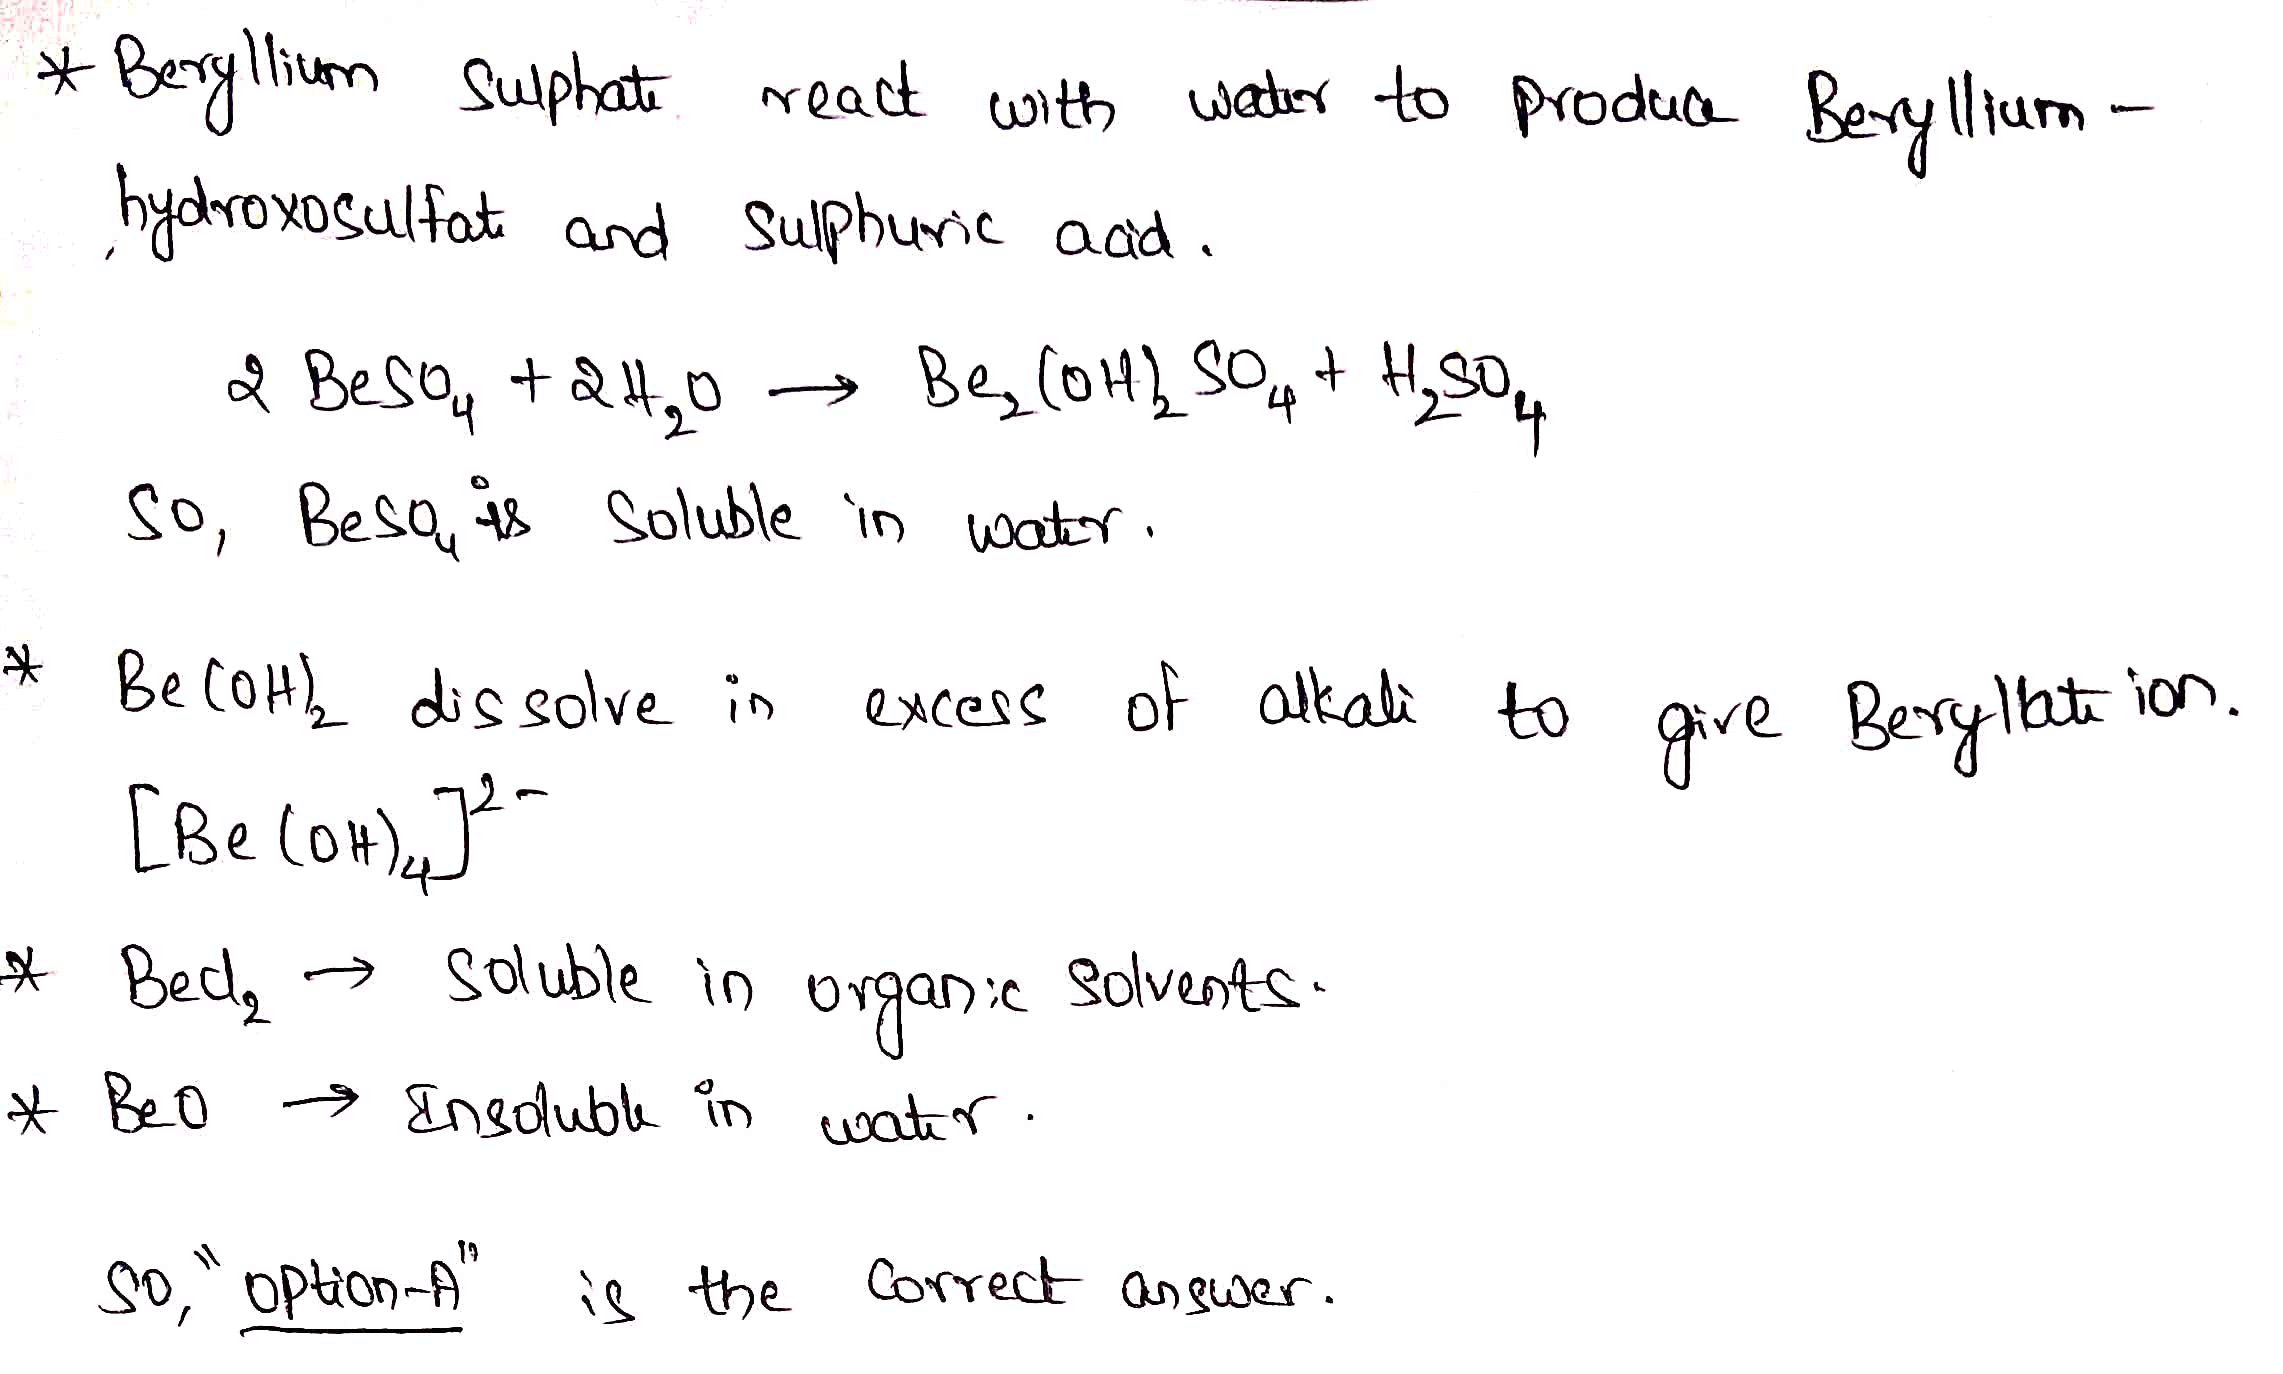 * Beryllium Sulphate react with water to produce Beryllium -
hydroxosulfate and Sulphuric acid.
2 BeSO₄ + 2H₂O → Be₂(OH)₂ SO₄ + H₂SO₄
So, BeSO₄ is Soluble in water.
* Be(OH)₂ dissolve in excess of alkali to give Beryllate ion.
[Be(OH)₄]²⁻
* BeCl₂ → Soluble in organic Solvents.
* BeO → Insoluble in water.
So, "option-A" is the Correct answer.